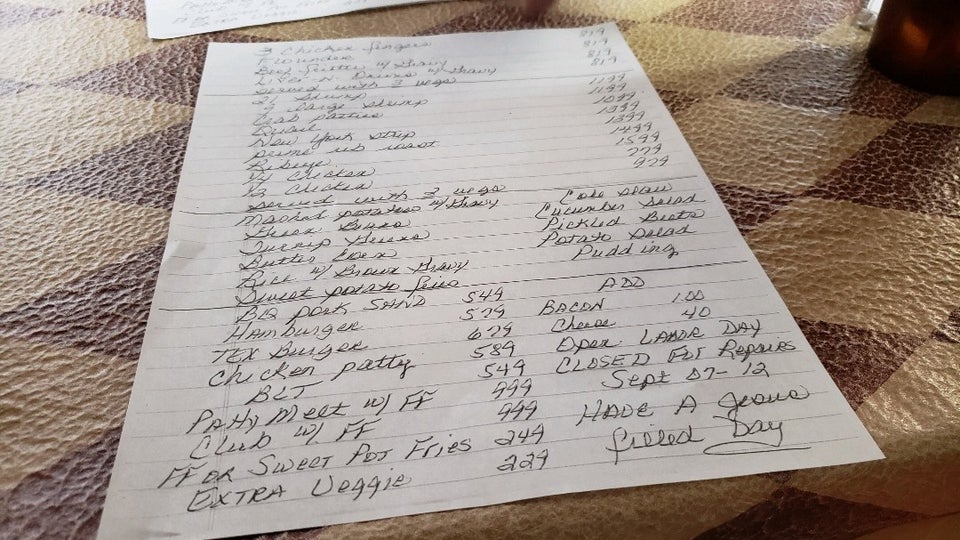 3 Chicken fingers 819
Flounder 819
Beef Patties w/ Gravy 819
w/ Gravy 819
Served with 2 vegs
21 Shrimp 1199
Large Shrimp 1199
Crab Patties 1099
Quail 1399
New York Strip 1399
Prime rib roast 1499
Ribeye 1599
1/4 Chicken 779
1/2 Chicken 979
Served with 2 vegs
Mashed potatoes w/ Gravy Cole Slaw
Green Beans Cucumber Salad
Turnip Greens Pickled Beets
Butter Potato Salad
Rice w/ Brown Gravy Pudding
Sweet potato
BBQ PORK SAND 549 ADD
Hamburger 579 BACON 1.00
TEX Burger 679 Cheese 40
Chicken Patty 589 Open LABOR DAY
BLT 549 CLOSED FOT Repairs
Patty Melt w/ FF 999 Sept 07-12
Club w/ FF 999 HAVE A Jesus
FF OR SWEET POT FRIES 249 filled Day
EXTRA Veggie 229